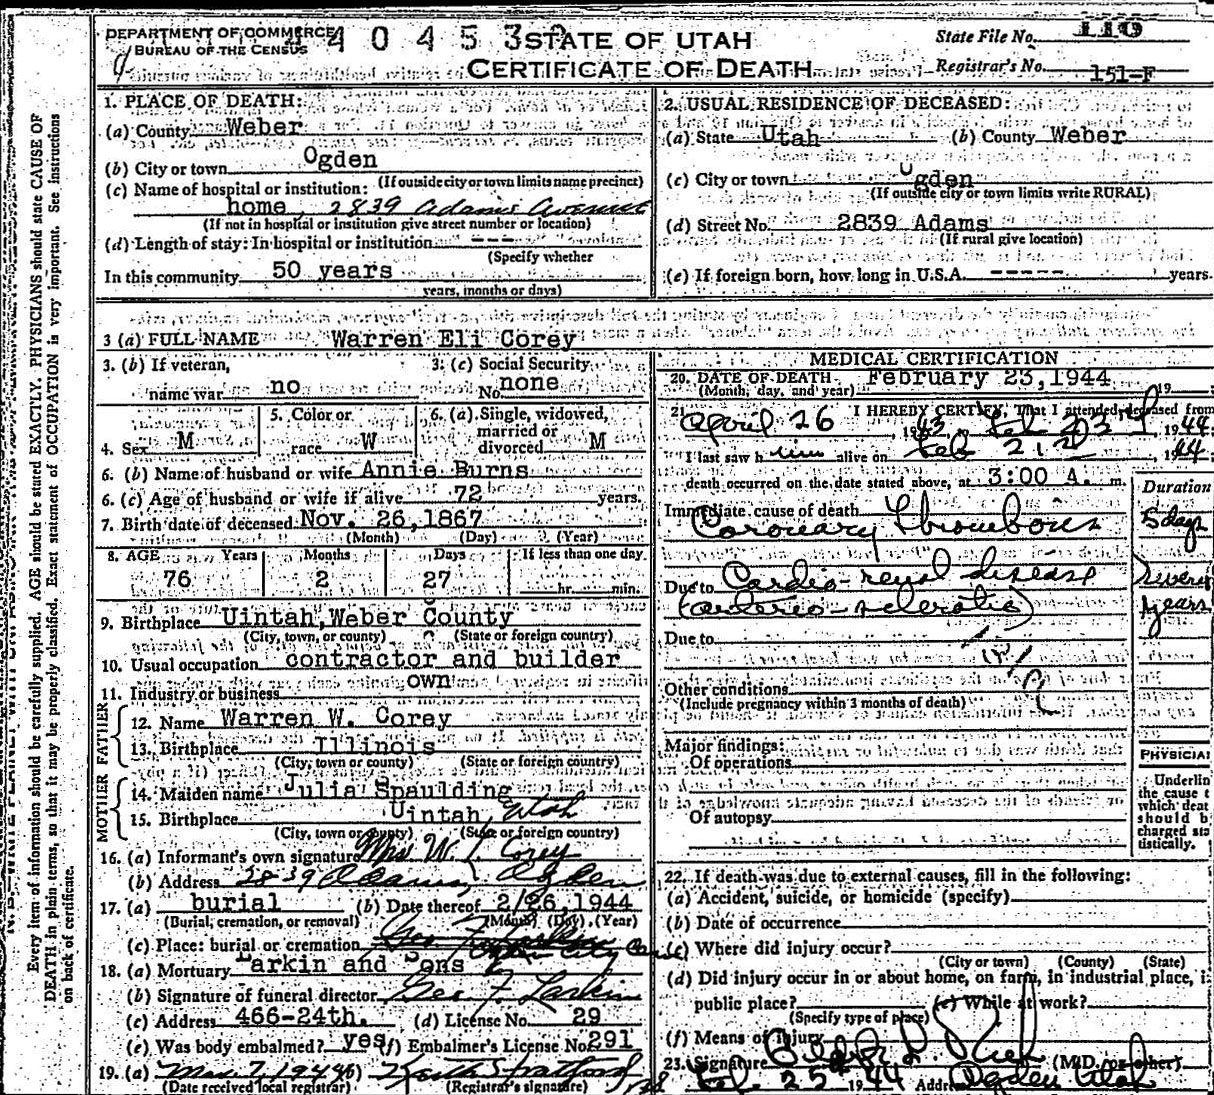 DEPARTMENT OF COMMERCE
BUREAU OF THE CENSUS
4 4 0 4 5 3
STATE OF UTAH
CERTIFICATE OF DEATH
State File No. 110
Registrar's No. 151-F
Every item of information should be carefully supplied. AGE should be stated EXACTLY. PHYSICIANS should state CAUSE OF
DEATH in plain terms, so that it may be properly classified. Exact statement of OCCUPATION is very important. See instructions
on back of certificate.
1. PLACE OF DEATH:
(a) County Weber
(b) City or town Ogden
(If outside city or town limits name precinct)
(c) Name of hospital or institution:
home 2839 Adams Avenue
(If not in hospital or institution give street number or location)
(d) Length of stay: In hospital or institution ---
(Specify whether
In this community 50 years
years, months or days)
2. USUAL RESIDENCE OF DECEASED:
(a) State Utah (b) County Weber
(c) City or town Ogden
(If outside city or town limits write RURAL)
(d) Street No. 2839 Adams
(If rural give location)
(e) If foreign born, how long in U.S.A. ----- years.
3 (a) FULL NAME Warren Eli Corey
3. (b) If veteran,
name war no
3. (c) Social Security
No. none
4. Sex M
5. Color or
race W
6. (a) Single, widowed,
married or
divorced M
6. (b) Name of husband or wife Annie Burns
6. (c) Age of husband or wife if alive 72 years.
7. Birth date of deceased Nov. 26, 1867
(Month) (Day) (Year)
8. AGE Years Months Days If less than one day
76 2 27 hr. min.
9. Birthplace Uintah, Weber County
(City, town, or county) (State or foreign country)
10. Usual occupation contractor and builder
11. Industry or business own
FATHER
12. Name Warren W. Corey
13. Birthplace Illinois
(City, town or county) (State or foreign country)
MOTHER
14. Maiden name Julia Spaulding
15. Birthplace Uintah Utah
(City, town or county) (State or foreign country)
16. (a) Informant's own signature Mrs W. Corey
(b) Address 2839 Adams, Ogden
17. (a) burial (b) Date thereof 2/26, 1944
(Burial, cremation, or removal) (Month) (Day) (Year)
(c) Place: burial or cremation Ogden City Cem
18. (a) Mortuary Larkin and Sons
(b) Signature of funeral director Geo. F. Larkin
(c) Address 466-24th. (d) License No. 29
(e) Was body embalmed? yes (f) Embalmer's License No. 291
19. (a) Mar 7, 1944 (b) Keith Stratford
(Date received local registrar) (Registrar's signature)
MEDICAL CERTIFICATION
20. DATE OF DEATH February 23, 1944 19
(Month, day, and year)
21. I HEREBY CERTIFY, That I attended deceased from
April 26, 1943, Feb 23, 1944;
I last saw him alive on Feb 21, 1944;
death occurred on the date stated above, at 3:00 A. m.
Duration
Immediate cause of death
Coronary Thrombosis 5 days
Due to Cardio-renal disease
(arterio-sclerotic) years
Due to
Other conditions
(Include pregnancy within 3 months of death)
Major findings:
Of operations
Of autopsy
PHYSICIAN
Underlin
the cause t
which deat
should b
charged sta
tistically.
22. If death was due to external causes, fill in the following:
(a) Accident, suicide, or homicide (specify)
(b) Date of occurrence
(c) Where did injury occur?
(City or town) (County) (State)
(d) Did injury occur in or about home, on farm, in industrial place, i
public place? (e) While at work?
(Specify type of place)
(f) Means of injury
23. Signature Rich (M.D. or other)
Feb 25th 1944 Address Ogden Utah